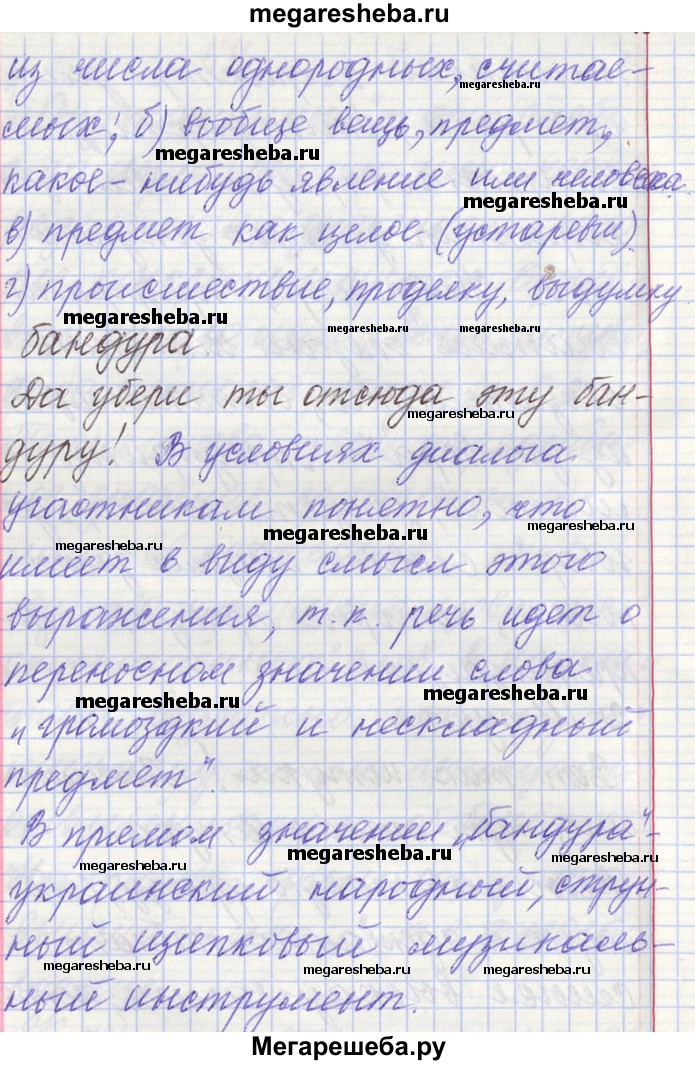 megaresheba.ru
из числа однородных, считае-
megaresheba.ru
мых; б) вообще вещь, предмет,
megaresheba.ru
какое-нибудь явление или человека.
megaresheba.ru
в) предмет как целое (устаревше)
г) происшествие, проделку, выдумку.
megaresheba.ru
megaresheba.ru
megaresheba.ru
бандура
Да убери ты отсюда эту бан-
megaresheba.ru
дуру! В условиях диалога
участникам понятно, что
megaresheba.ru
megaresheba.ru
megaresheba.ru
имеет в виду смысл этого
выражения, т.к. речь идет о
переносном значении слова
megaresheba.ru
megaresheba.ru
"громоздкий и нескладный
предмет".
В прямом значении „бандура"-
megaresheba.ru
megaresheba.ru
megaresheba.ru
украинский народный, струн-
ный щипковый музикаль-
megaresheba.ru
megaresheba.ru
megaresheba.ru
ный инструмент.
megaresheba.ru
Мегарешеба.ру